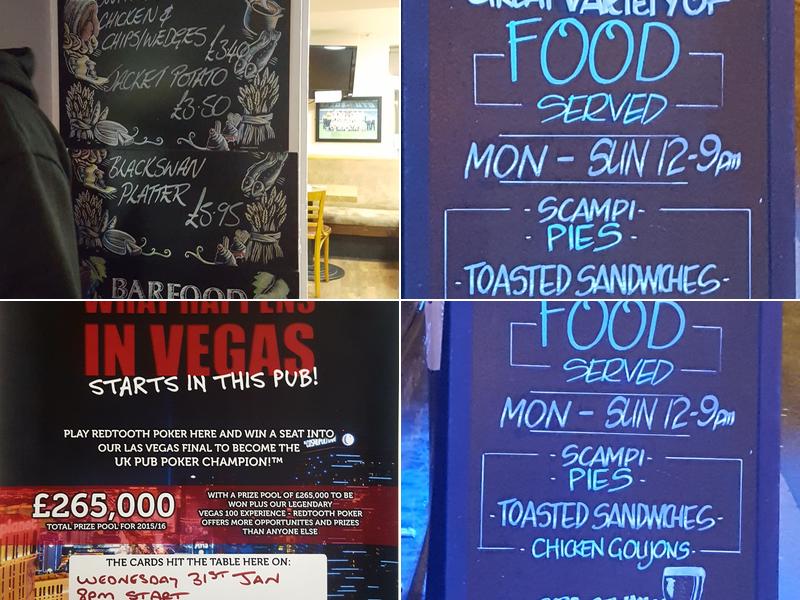 CHICKEN &
CHIPS/WEDGES £3.40
JACKET POTATO
£3.50
BLACKSWAN
PLATTER £5.95
BARFOOD
GREAT VARIETY OF
FOOD
SERVED
MON - SUN 12-9pm
-SCAMPI-
-PIES-
-TOASTED SANDWICHES-
WHAT HAPPENS
IN VEGAS
STARTS IN THIS PUB!
PLAY REDTOOTH POKER HERE AND WIN A SEAT INTO
OUR LAS VEGAS FINAL TO BECOME THE
UK PUB POKER CHAMPION!™
£265,000
TOTAL PRIZE POOL FOR 2015/16
WITH A PRIZE POOL OF £265,000 TO BE
WON PLUS OUR LEGENDARY
VEGAS 100 EXPERIENCE - REDTOOTH POKER
OFFERS MORE OPPORTUNITES AND PRIZES
THAN ANYONE ELSE
THE CARDS HIT THE TABLE HERE ON:
WEDNESDAY 31ST JAN
8PM START
FOOD
SERVED
MON - SUN 12-9pm
SCAMPI-
-PIES-
-TOASTED SANDWICHES-
CHICKEN GOUJONS-